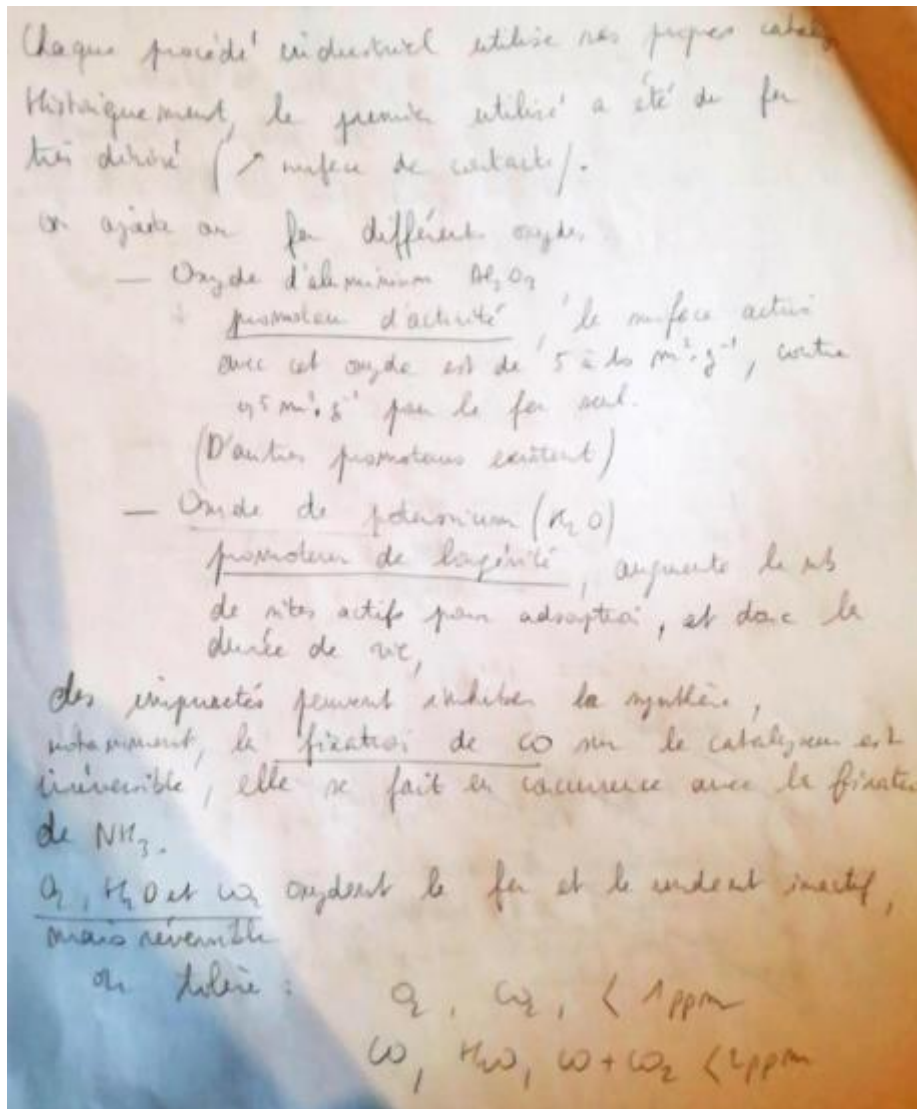 Chaque procédé industriel utilise ses propres
Historiquement, le premier utilisé a été du fer
très divisé (↗ surface de contacts).
on ajoute au fer différents oxydes
— Oxyde d'aluminium Al2O3
promoteur d'activité, la surface active
avec cet oxyde est de 5 à m².g⁻¹, contre
m².g⁻¹ pour le fer seul.
(D'autres promoteurs existent)
— Oxyde de potassium (K2O)
promoteur de longévité, augmente le nb
de sites actifs pour adsorption, et donc la
durée de vie,
des impuretés peuvent inhiber la synthèse,
notamment, la fixation de CO sur le catalyseur est
irréversible, elle se fait en avec la
de NH3.
O2, H2O et CO2 oxydent le fer et le rendent inactif,
mais réversible
on tolère :
O2, CO2, < 1 ppm
CO, H2O, CO + CO2 < ppm